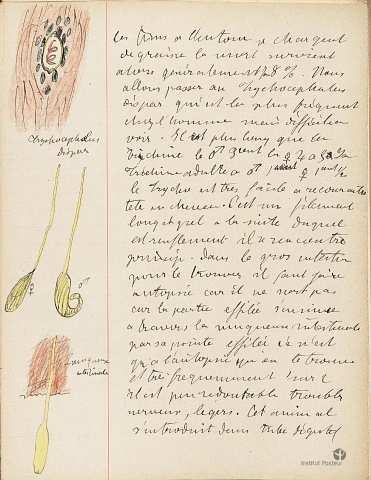 les Reins et les tons se chargent
de graisse la mort survient
alors généralement 28 %. Nous
allons passer au Trychocephalus
dispar qui est le plus fréquent
chez l'homme mais difficile a
voir. Il est plus long que la
Trichine le ♂
Trichine adulte a ♂ 1 ♀
le Trycho est très facile a reconnaître
tête en cheveu. C'est un filament
long et grêl a la suite duquel
est renflement il se rencontre
Dans le gros intestin
pour le trouver il faut faire
autopsie car il ne sort pas
car la partie effilée s'insinue
a travers la muqueuse intestinale
par sa pointe effilée ce n'est
qu'a l'autopsie qu'on le trouve
et très fréquemment 1 sur 2
il est peu redoutable troubles
nerveux, légers. Cet animal
s'introduit dans tube digestif
Trychocephalus
dispar
♀
♂
muqueuse
intestinale
Institut Pasteur